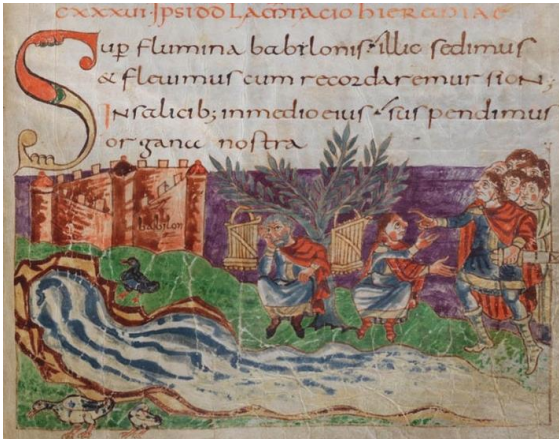 CXXXVI·IPSI DD LAMTACIO HIEREMIAE
Sup flumina babilonis illic sedimus
& fleuimus cum recordaremur sion;
In salicib; in medio eius suspendimus
organa nostra
babilon